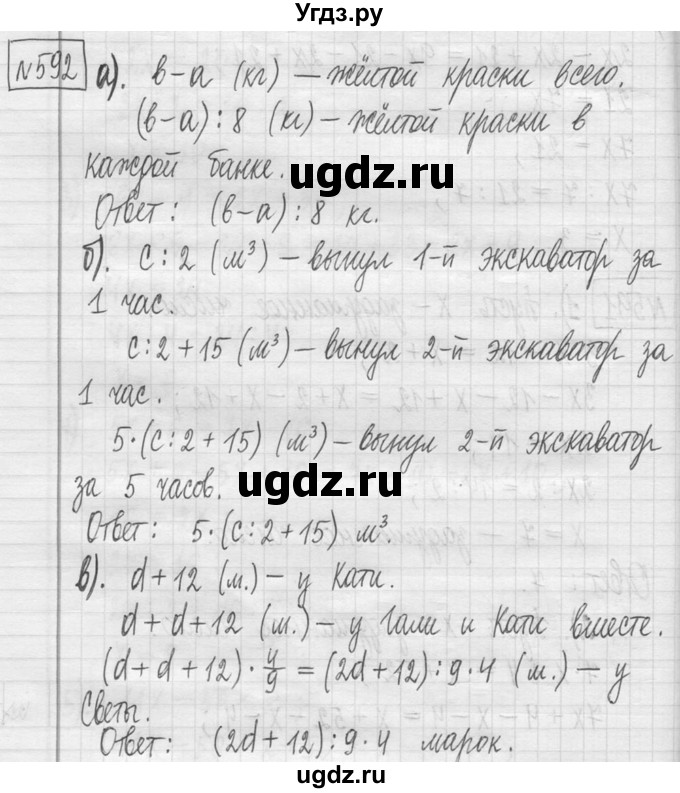 Угдз.ру
№592 а). в-а (кг) — жёлтой краски всего.
(в-а) : 8 (кг) — жёлтой краски в
каждой банке.
ugdz.ru
Ответ: (в-а) : 8 кг.
б). с : 2 (м³) — вынул 1-й экскаватор за
1 час.
с : 2 + 15 (м³) — вынул 2-й экскаватор за
1 час.
5·(с : 2 + 15) (м³) — вынул 2-й экскаватор
за 5 часов.
ugdz.ru
Ответ: 5·(с : 2 + 15) м³.
в). d + 12 (м.) — у Кати.
d + d + 12 (м.) — у Гали и Кати вместе.
(d + d + 12) · 4/9 = (2d + 12) : 9 · 4 (м.) — у
Светы.
Ответ: (2d + 12) : 9 · 4 марок.
ugdz.ru